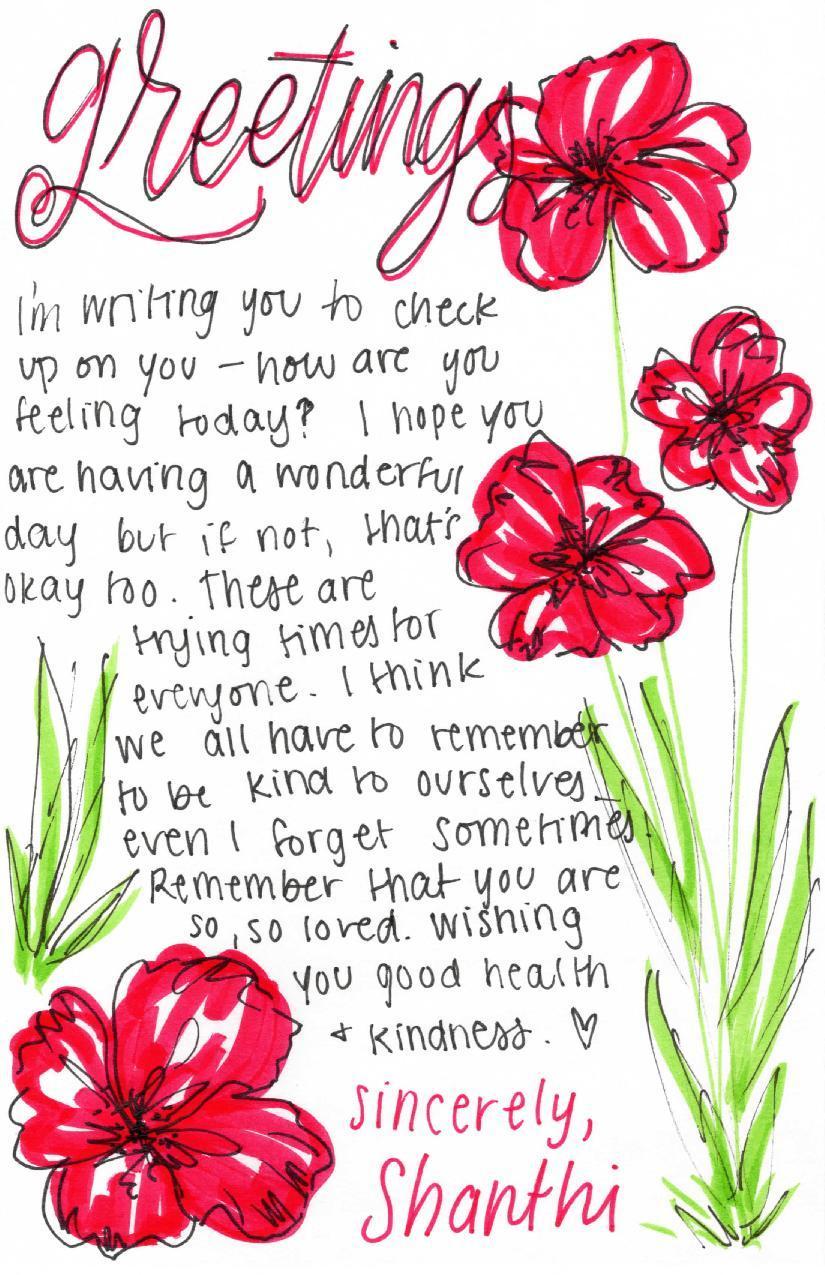 greetings
I'm writing you to check
up on you – how are you
feeling today? I hope you
are having a wonderful
day but if not, that's
okay too. These are
trying times for
everyone. I think
we all have to remember
to be kind to ourselves –
even I forget sometimes.
Remember that you are
so, so loved. Wishing
you good health
+ kindness. ♡
sincerely,
Shanthi